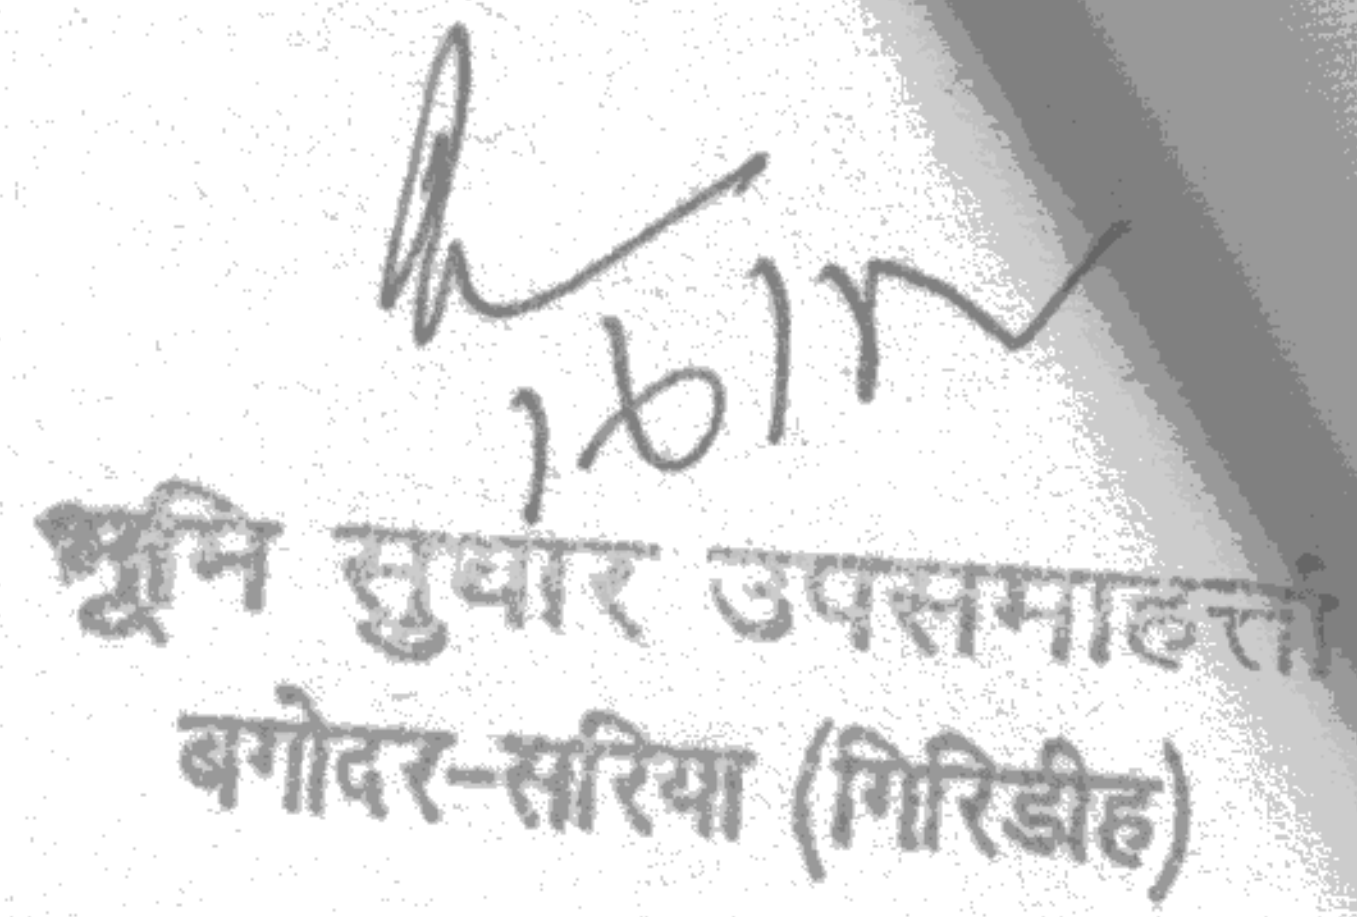 भूमि सुधार उपसमाहर्त्ता
बगोदर-सरिया (गिरिडीह)